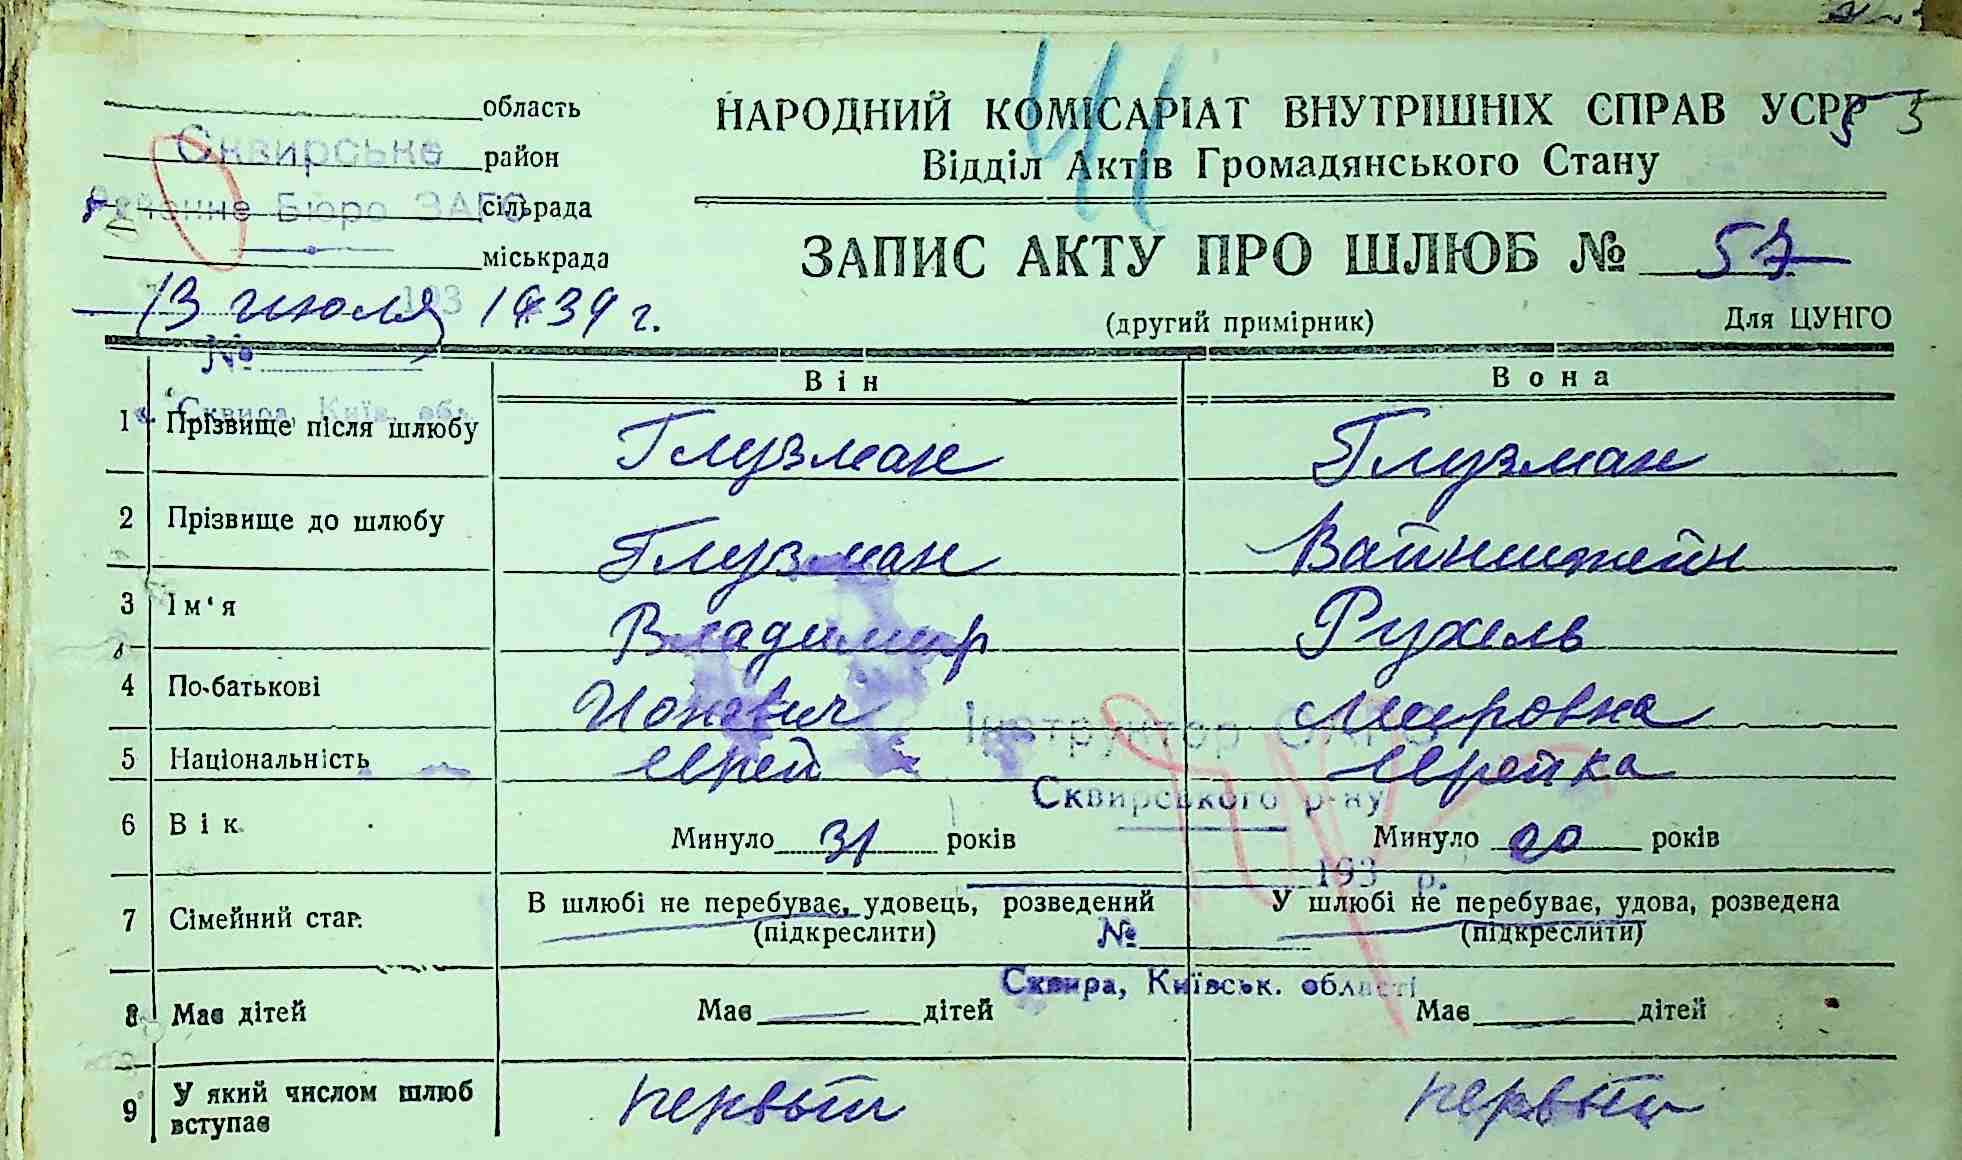 область
НАРОДНИЙ КОМІСАРІАТ ВНУТРІШНІХ СПРАВ УСРР
Сквирське
район
Відділ Актів Громадянського Стану
Районне Бюро ЗАГС
сільрада
міськрада
ЗАПИС АКТУ ПРО ШЛЮБ № 57
193
13 июля 1939 г.
(другий примірник)
Для ЦУНГО
№
Він
Вона
Сквира, Київ. обл.
1 Прізвище після шлюбу Глузман Глузман
2 Прізвище до шлюбу Глузман Вайнштейн
3 Ім'я Владимир Рухель
4 По-батькові Ионевич Мееровна
Інструктор
5 Національність Еврей Еврейка
Сквирського р-ну
6 Вік Минуло 31 років Минуло 20 років
193 р.
7 Сімейний стан В шлюбі не перебуває, удовець, розведений У шлюбі не перебуває, удова, розведена
(підкреслити) (підкреслити)
№
Сквира, Київськ. області
8 Має дітей Має — дітей Має дітей
9 У який числом шлюб первый первый
вступає